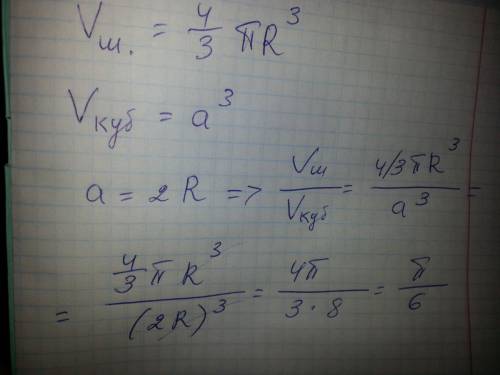 Vш. = 4/3 πR³
Vкуб = a³
a = 2R => Vш/Vкуб = 4/3πR³/a³ =
= 4/3 πR³/(2R)³ = 4π/3·8 = π/6